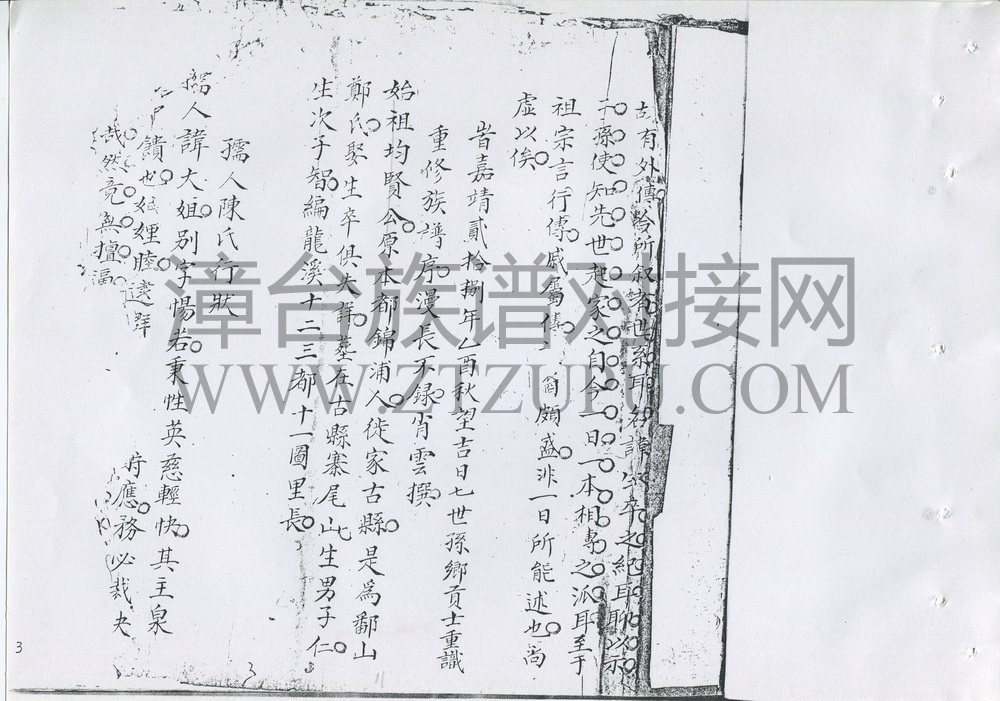 古有外傳給所叙諸世系耳名諱生卒之紀耳聊以示
子孫使知先世起家之自今一日一本相專之派耳至于
祖宗言行傳戚屬傳爾頗盛非一日所能述也尚
虛以俟
旹嘉靖貳拾捌年乙酉秋望吉日七世孫鄉貢士重識
重修族譜序漫長不録肖雲撰
始祖均賢公原本都錦浦人徙家古縣是為鄱山
鄭氏娶生卒俱失詳墓在古縣寨尾山生男子仁七
生次子智編龍溪十二三都十一圖里長
孺人陳氏行狀
孺人諱大姐別字惕若秉性英慈輕快其主泉
尸饋也 娌睦 應務必裁夬
哉然竟無擅
漳台族谱对接网
WWW.ZTZUPU.COM
3